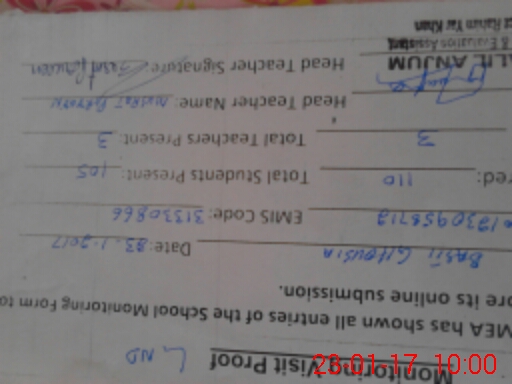 L ND
Monitoring Visit Proof
MEA has shown all entries of the School Monitoring Form to
ore its online submission.
BASTI GHOUSIA Date: 23.1.2017
EMIS Code: 31330866
red: 110 Total Students Present: 105
3 Total Teachers Present: 3
Head Teacher Name:
Head Teacher Signature:
ANJUM
& Evaluation Assistant
ct Rahim Yar Khan
23-01-17 10:00